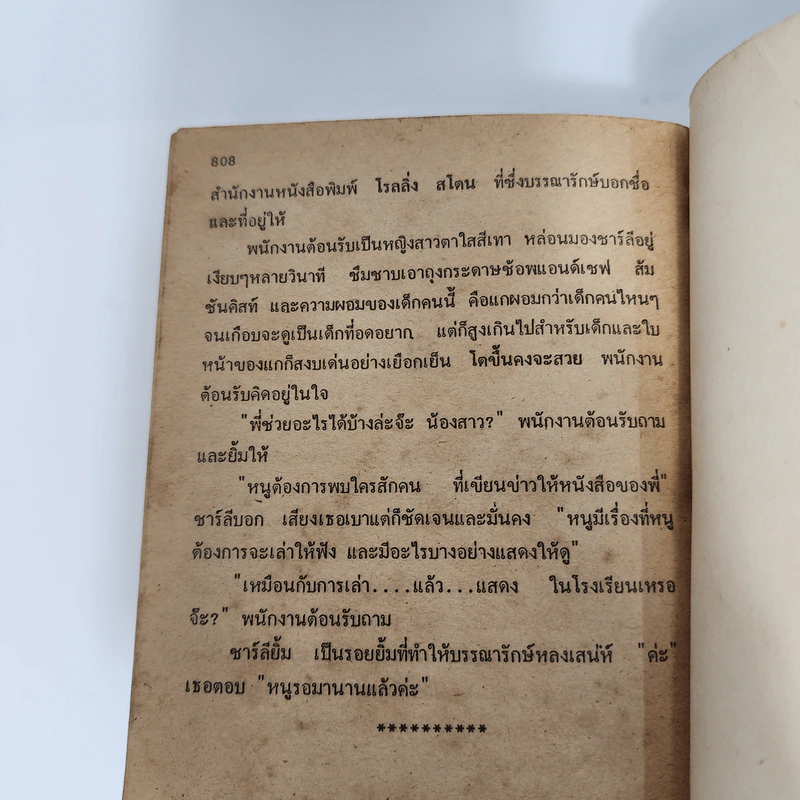 808
สำนักงานหนังสือพิมพ์ โรลลิ่ง สโตน ที่ซึ่งบรรณารักษ์บอกชื่อ
และที่อยู่ให้
พนักงานต้อนรับเป็นหญิงสาวตาใสสีเทา หล่อนมองชาร์ลีอยู่
เงียบๆหลายวินาที ซึมซาบเอาถุงกระดาษช้อพแอนด์เชฟ สัม
ชันคิสท์ และความผอมของเด็กคนนี้ คือแกผอมกว่าเด็กคนไหนๆ
จนเกือบจะดูเป็นเด็กที่อดอยาก แต่ก็สูงเกินไปสำหรับเด็กและใบ
หน้าของแกก็สงบเด่นอย่างเยือกเย็น โตขึ้นคงจะสวย พนักงาน
ต้อนรับคิดอยู่ในใจ
"พี่ช่วยอะไรได้บ้างล่ะจ๊ะ น้องสาว?" พนักงานต้อนรับถาม
และยิ้มให้
"หนูต้องการพบใครสักคน ที่เขียนข่าวให้หนังสือของพี่"
ชาร์ลีบอก เสียงเธอเบาแต่ก็ชัดเจนและมั่นคง "หนูมีเรื่องที่หนู
ต้องการจะเล่าให้ฟัง และมีอะไรบางอย่างแสดงให้ดู"
"เหมือนกับการเล่า....แล้ว...แสดง ในโรงเรียนเหรอ
จ๊ะ?" พนักงานต้อนรับถาม
ชาร์ลียิ้ม เป็นรอยยิ้มที่ทำให้บรรณารักษ์หลงเสน่ห์ "ค่ะ"
เธอตอบ "หนูรอมานานแล้วค่ะ"
**********